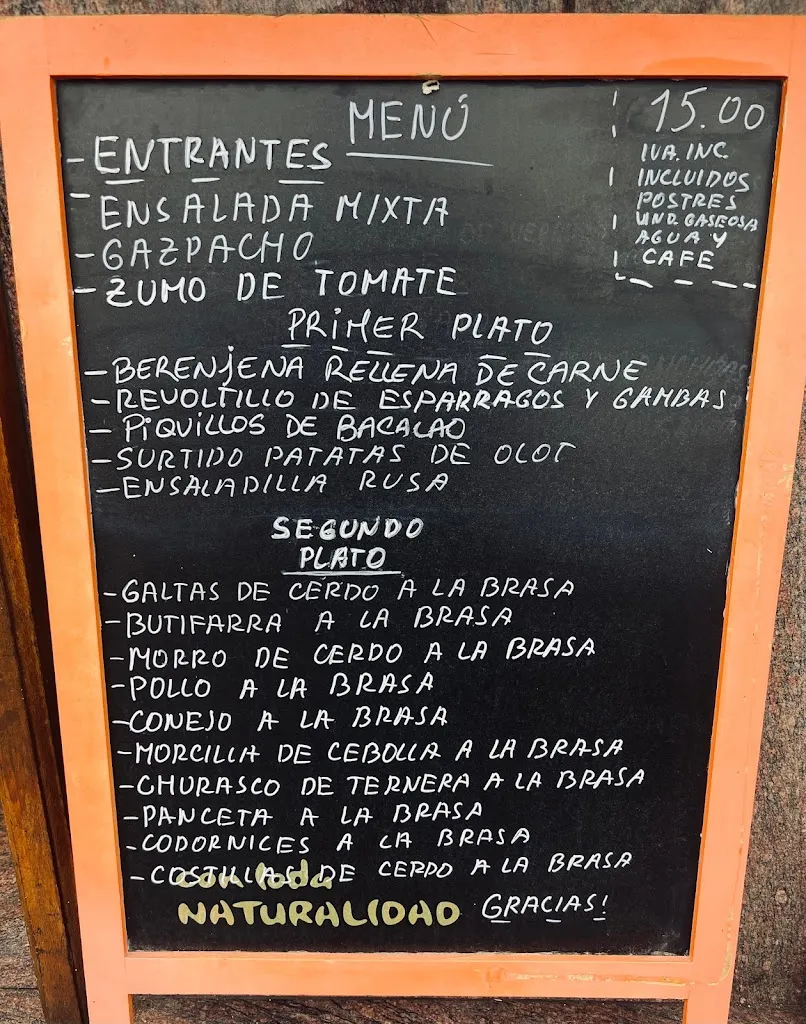 MENÚ
- ENTRANTES
- ENSALADA MIXTA
- GAZPACHO
- ZUMO DE TOMATE
15.00
IVA. INC.
INCLUIDOS
POSTRES
VND. GASEOSA
AGUA Y
CAFE
PRIMER PLATO
- BERENJENA RELLENA DE CARNE
- REVOLTILLO DE ESPARRAGOS Y GAMBAS
- PIQUILLOS DE BACALAO
- SURTIDO PATATAS DE OLOT
- ENSALADILLA RUSA
SEGUNDO
PLATO
- GALTAS DE CERDO A LA BRASA
- BUTIFARRA A LA BRASA
- MORRO DE CERDO A LA BRASA
- POLLO A LA BRASA
- CONEJO A LA BRASA
- MORCILLA DE CEBOLLA A LA BRASA
- CHURASCO DE TERNERA A LA BRASA
- PANCETA A LA BRASA
- CODORNICES A LA BRASA
- COSTILLAS DE CERDO A LA BRASA
con toda
NATURALIDAD GRACIAS!